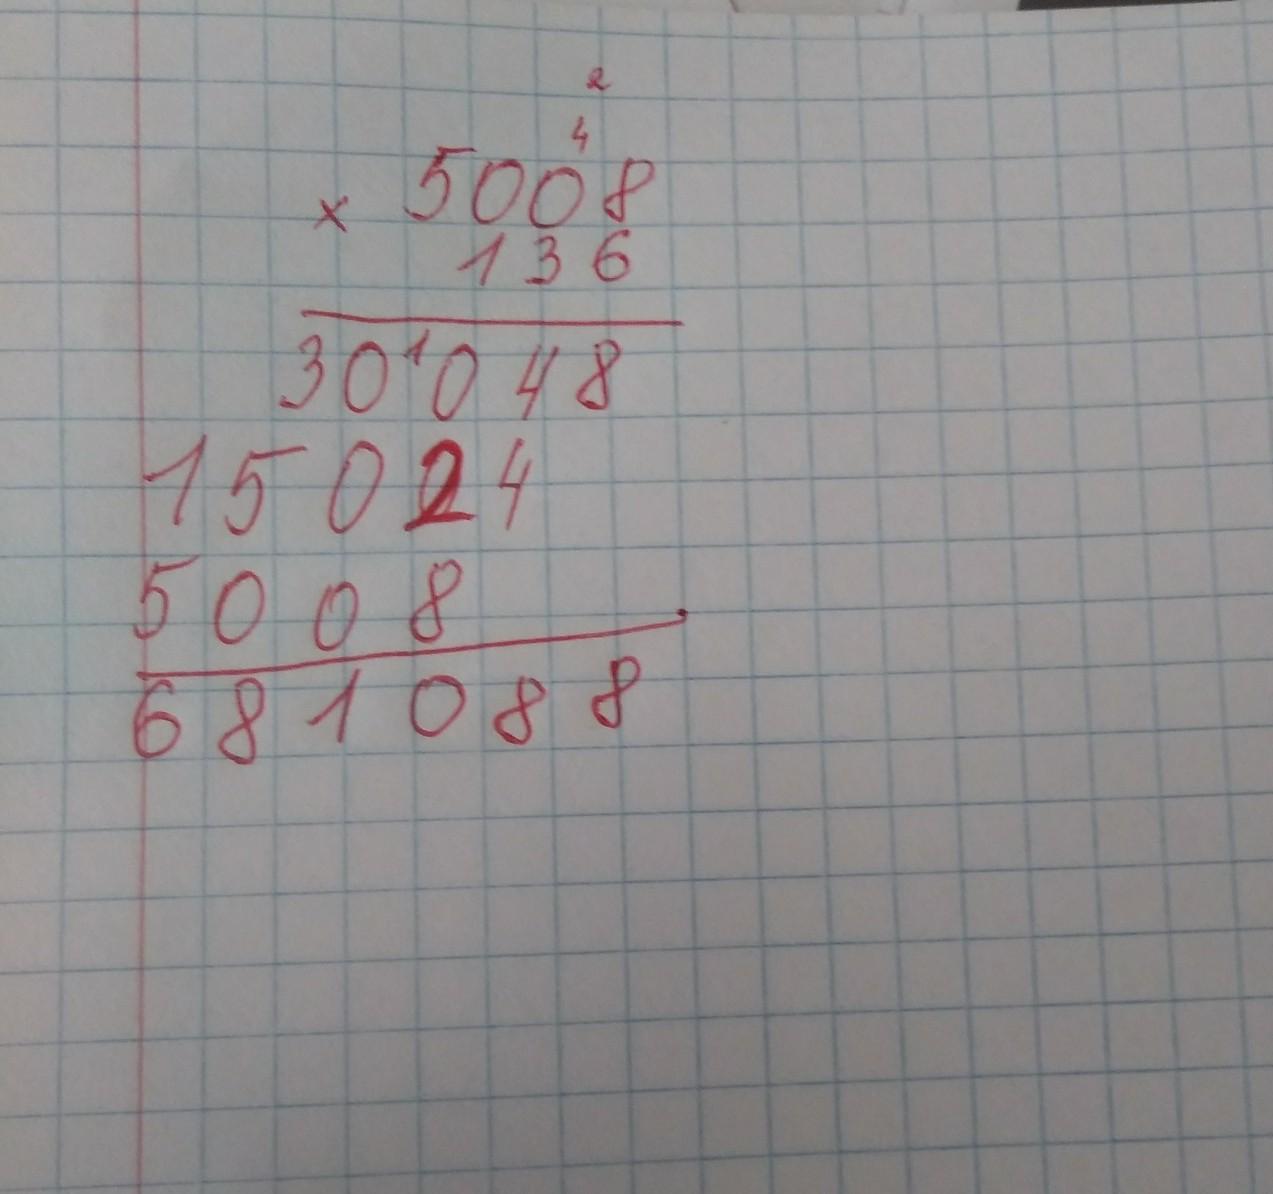 2
4
× 5008
136
30¹048
15024
5008
681088